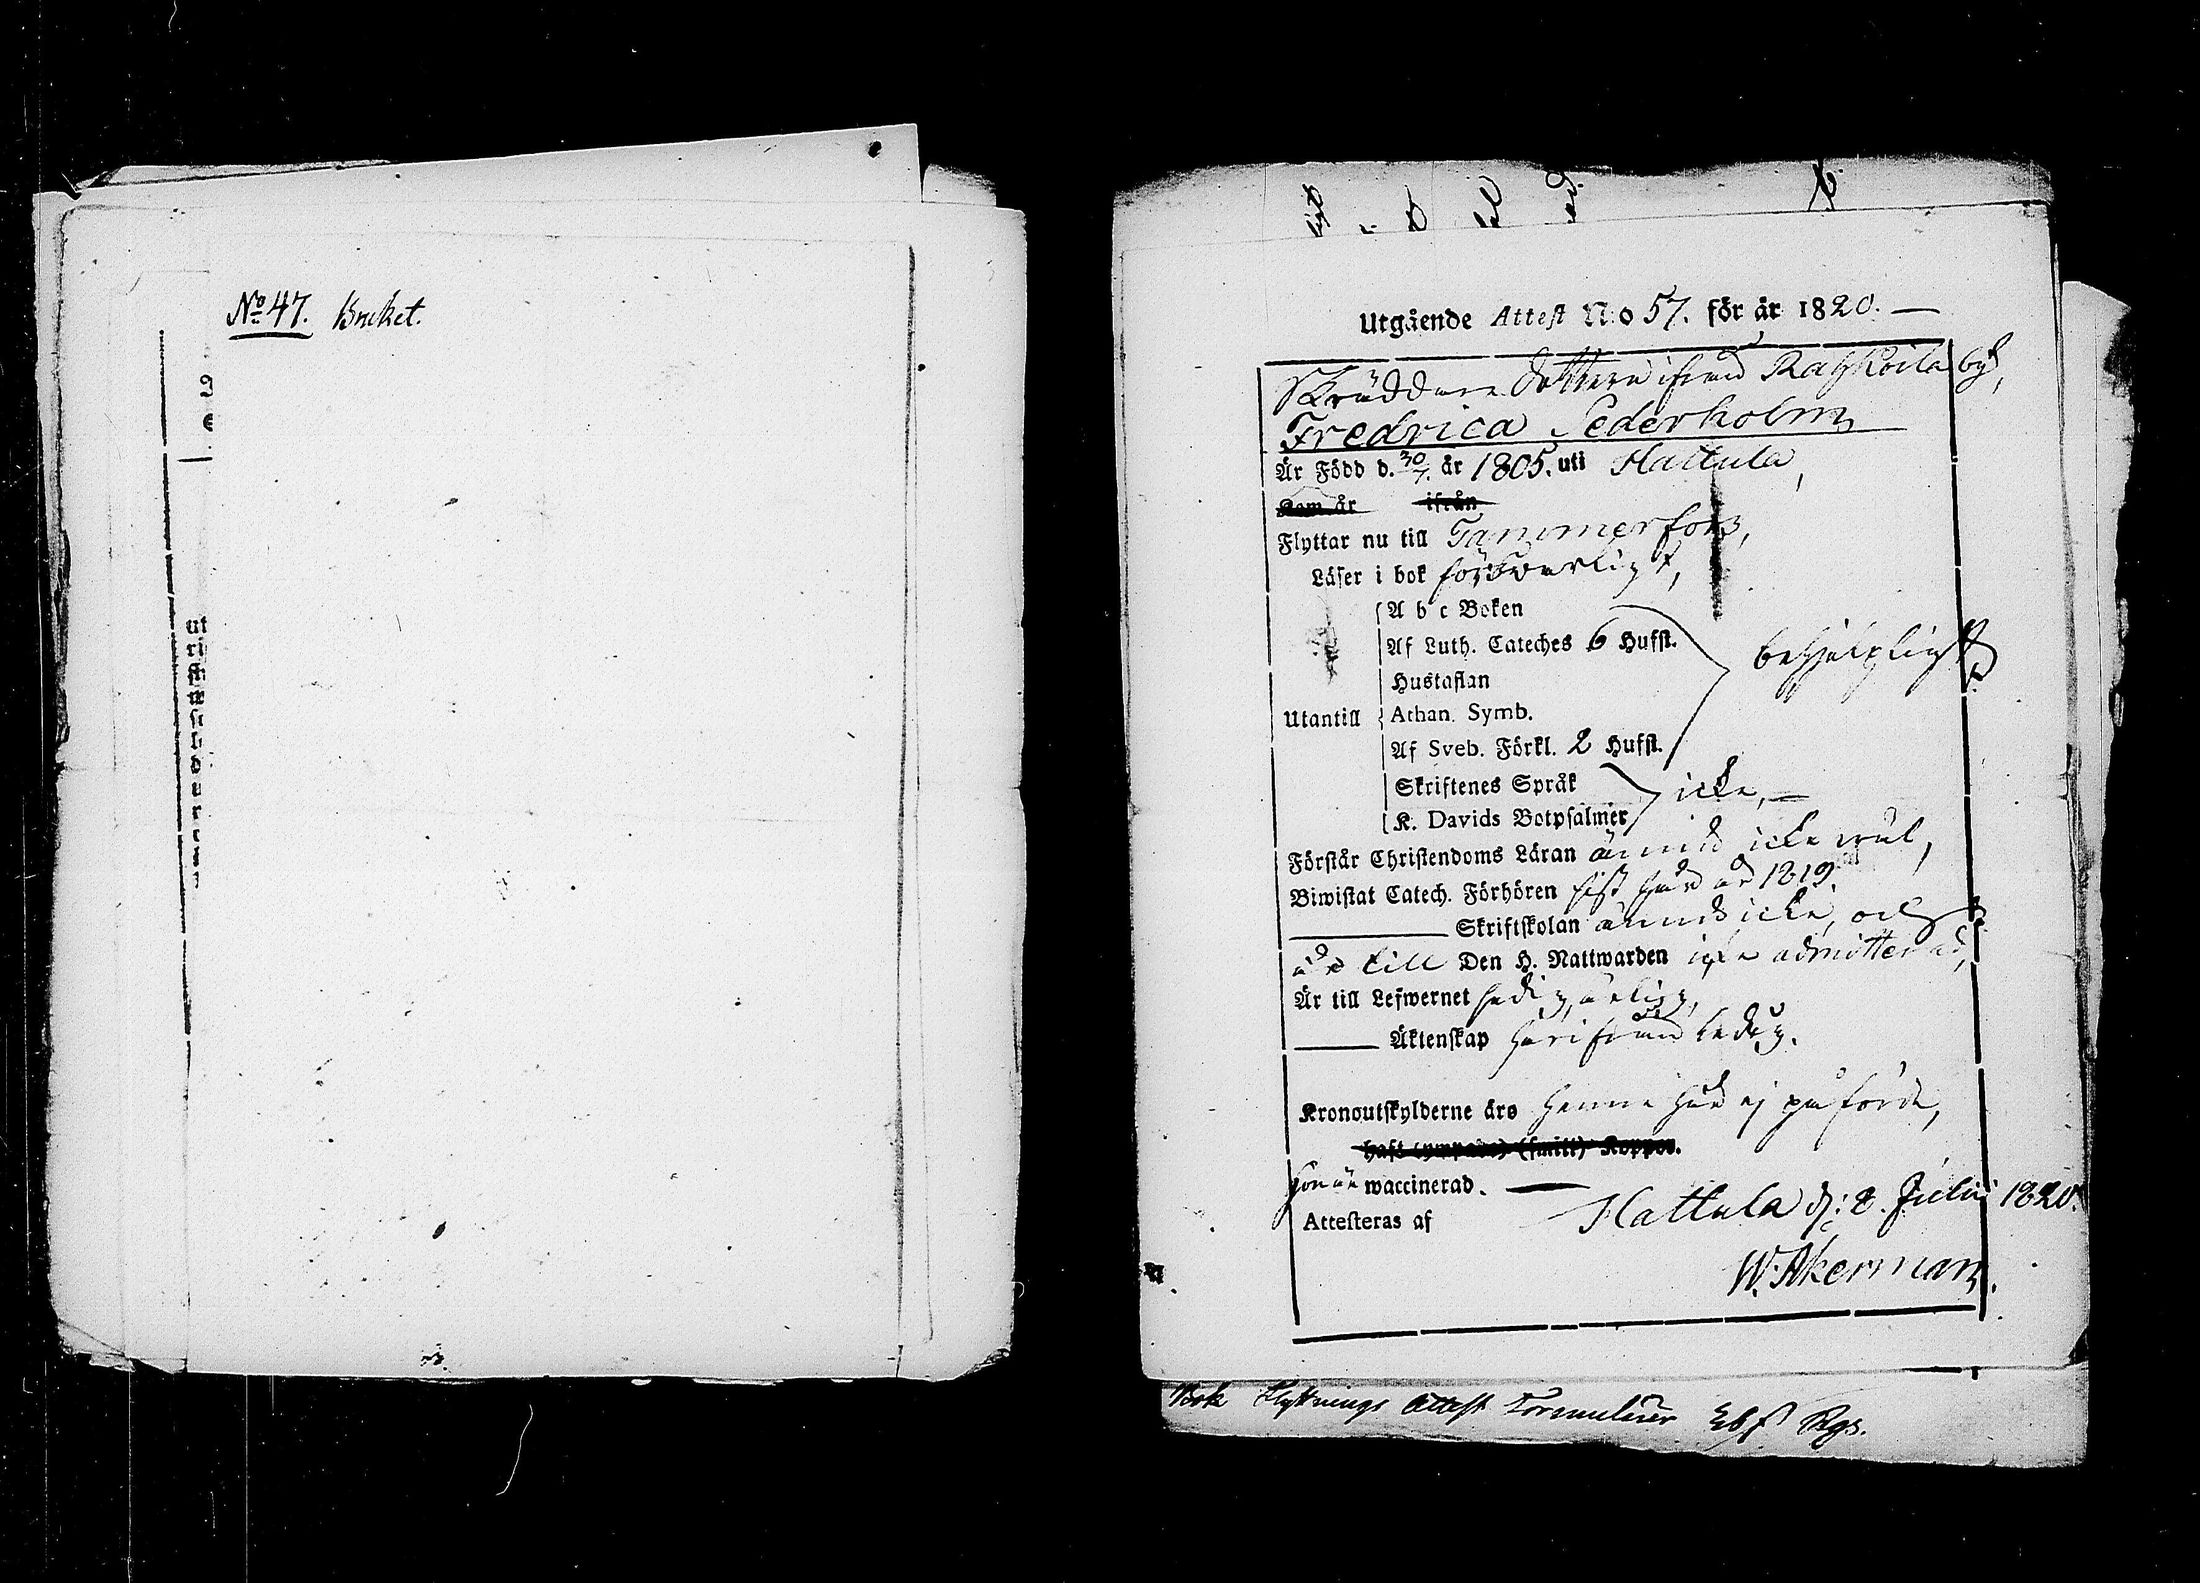 No 47. Bruket.
Utgående Attest No 57. för år 1820. —
Skräddare dottren ifrån Rahkoila by,
Fredrica Cederholm
Är Född d. 30/7. år 1805. uti Hattula,
Kom år ifrån
Flyttar nu till Tammerfors,
Läser i bok försvarligt,
A b c Boken
Af Luth. Cateches 6 Hufst.
Hustaflan
behjelpligt
Utantill Athan. Symb.
Af Sveb. Förkl. 2 Hufst.
Skriftenes Språk
icke, —
K. Davids Botpsalmer
Förstår Christendoms Läran ännu icke wäl,
Biwistat Catech. Förhören sist här år 1819.
Skriftskolan ännu icke, och
är till Den H. Nattwarden icke admitterad,
Är till Lefwernet sedig, ärlig,
Äktenskap härifrån ledig.
Kronoutskylderne äro henne här ej påförde,
haft (ympade) (smitt) Koppor.
Hon är waccinerad. —
Hattula d: 8. Julii 1820.
Attesteras af
W. Åkerman.
Bok Flyttnings Attest Formulairer